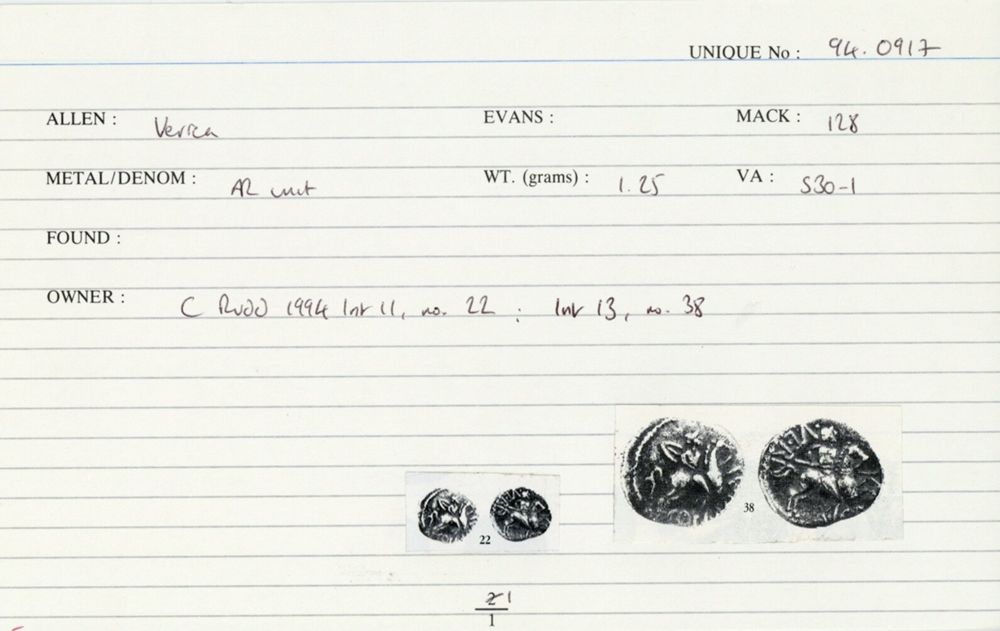 UNIQUE No : 94.0917
ALLEN : Verica EVANS : MACK : 128
METAL/DENOM : AR unit WT. (grams) : 1.25 VA : 530-1
FOUND :
OWNER : C Rudd 1994 list 11, no. 22 ; list 13, no. 38
38
22
2 1
1